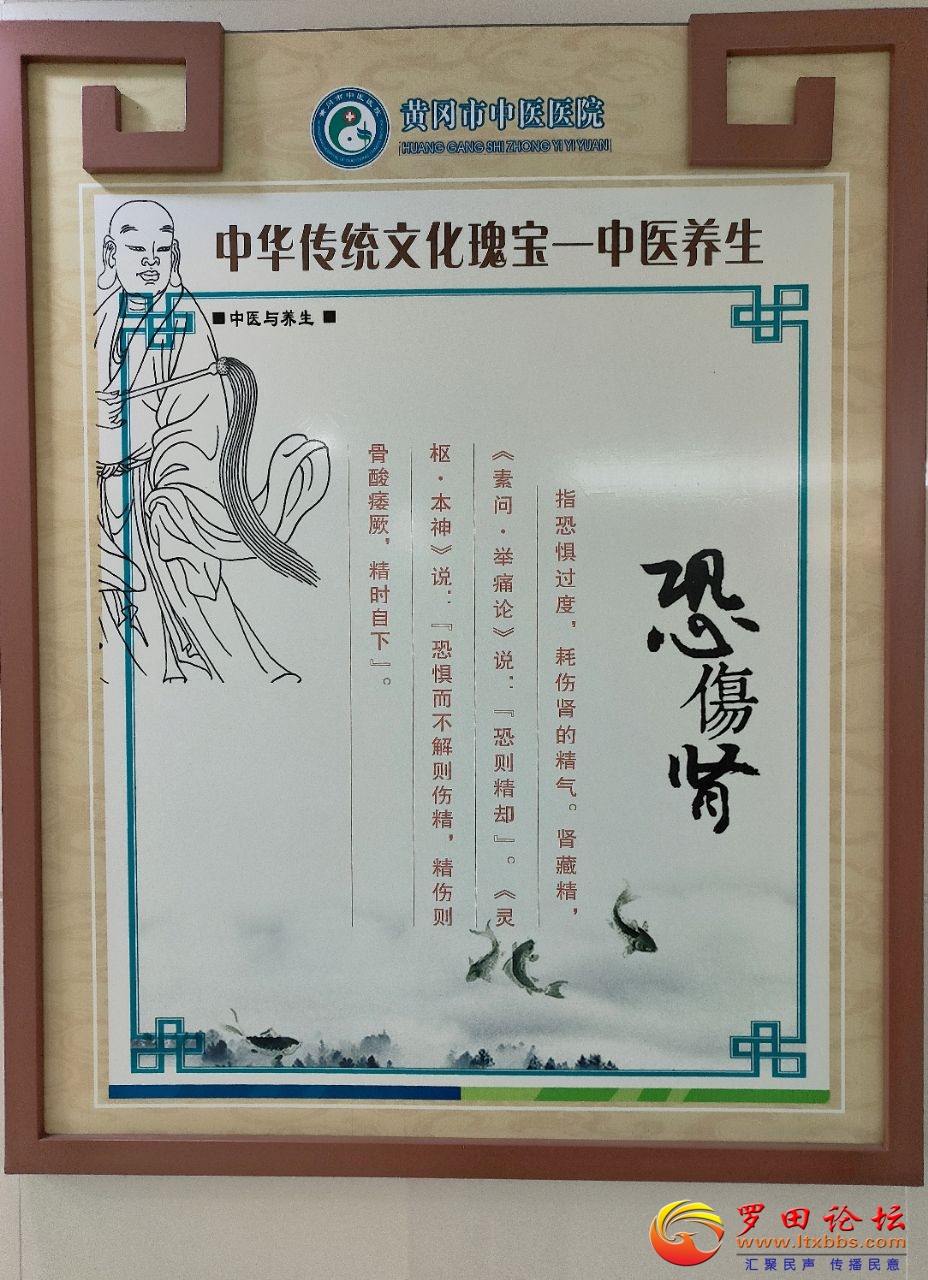 黄冈市中医医院
HUANG GANG SHI ZHONG YI YI YUAN
中华传统文化瑰宝—中医养生
■中医与养生 ■
恐傷肾
指恐惧过度，耗伤肾的精气。肾藏精，
《素问·举痛论》说：『恐则精却』。《灵
枢·本神》说：『恐惧而不解则伤精，精伤则
骨酸痿厥，精时自下』。
罗田论坛
www.ltxbbs.com
汇聚民声 传播民意